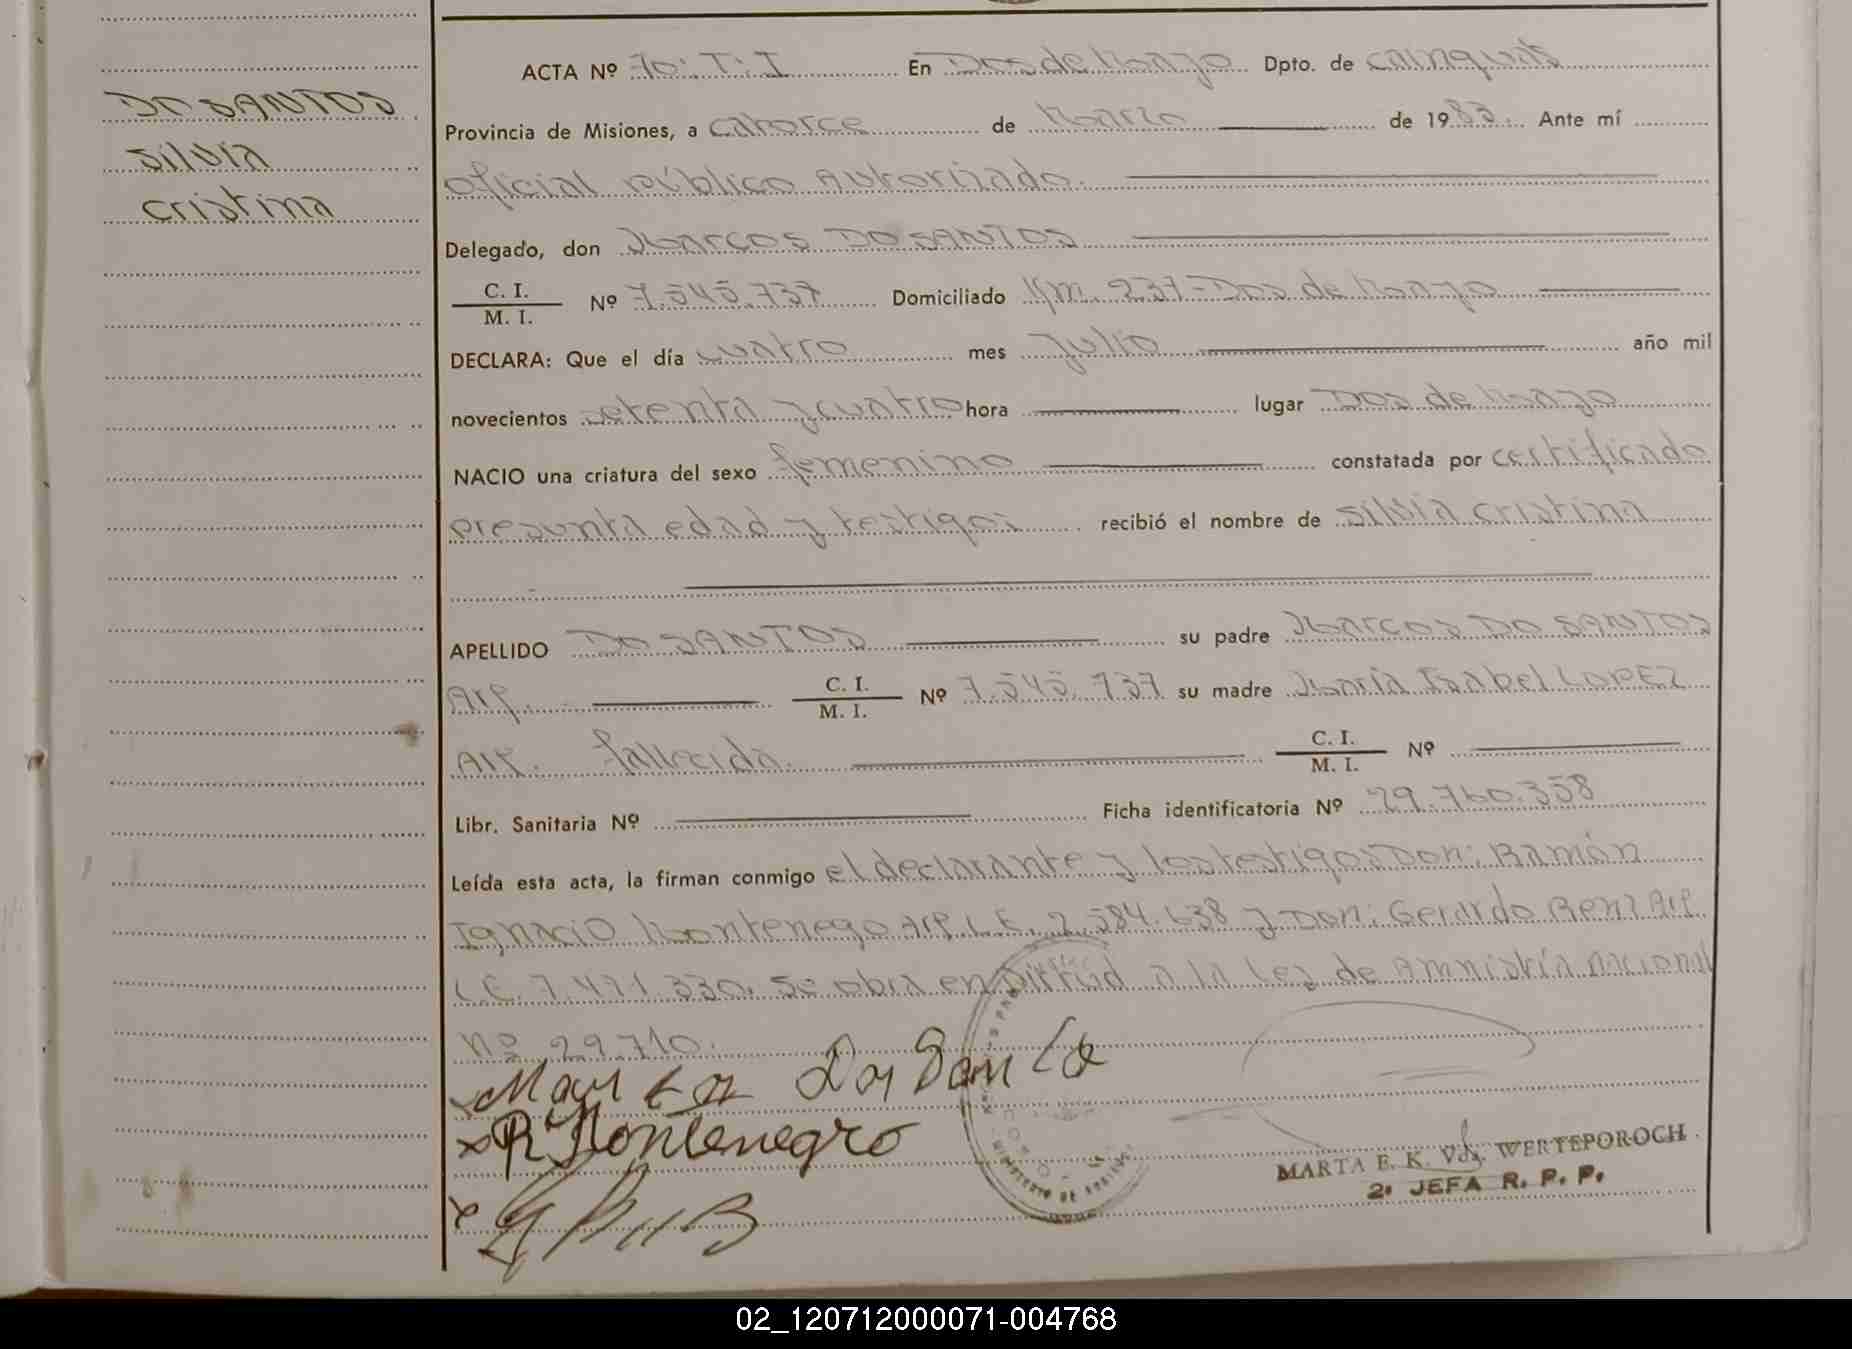 DO SANTOS
Silvia
Cristina
ACTA Nº 70: T: I En Dos de Mayo Dpto. de Cainguás
Provincia de Misiones, a catorce de Marzo de 1983. Ante mí
oficial público Autorizado.
Delegado, don Marcos DO SANTOS
C. I.
M. I. Nº 7.545.737 Domiciliado Km. 237-Dos de Mayo
DECLARA: Que el día cuatro mes Julio año mil
novecientos setenta y cuatro hora lugar Dos de Mayo
NACIO una criatura del sexo femenino constatada por certificado
presunta edad y testigos recibió el nombre de Silvia Cristina
APELLIDO DO SANTOS su padre Marcos DO SANTOS
Arg. C. I.
M. I. Nº 7.545.737 su madre María Isabel LOPEZ
Arg. fallecida. C. I.
M. I. Nº
Libr. Sanitaria Nº Ficha identificatoria Nº 29.760.358
Leída esta acta, la firman conmigo el declarante y los testigos Don: Ramón
Ignacio Montenego Arg. L.E. 2.584.638 y Don: Gerardo Benz Arg.
L.E. 7.471.330. Se obra en virtud a la Ley de Amnistía Nacional
Nº 29.710.
x R Montenegro
MINISTERIO DE
MARTA E. K. Vda. WERTEPOROCH
2ª JEFA R. P. P.
02_120712000071-004768